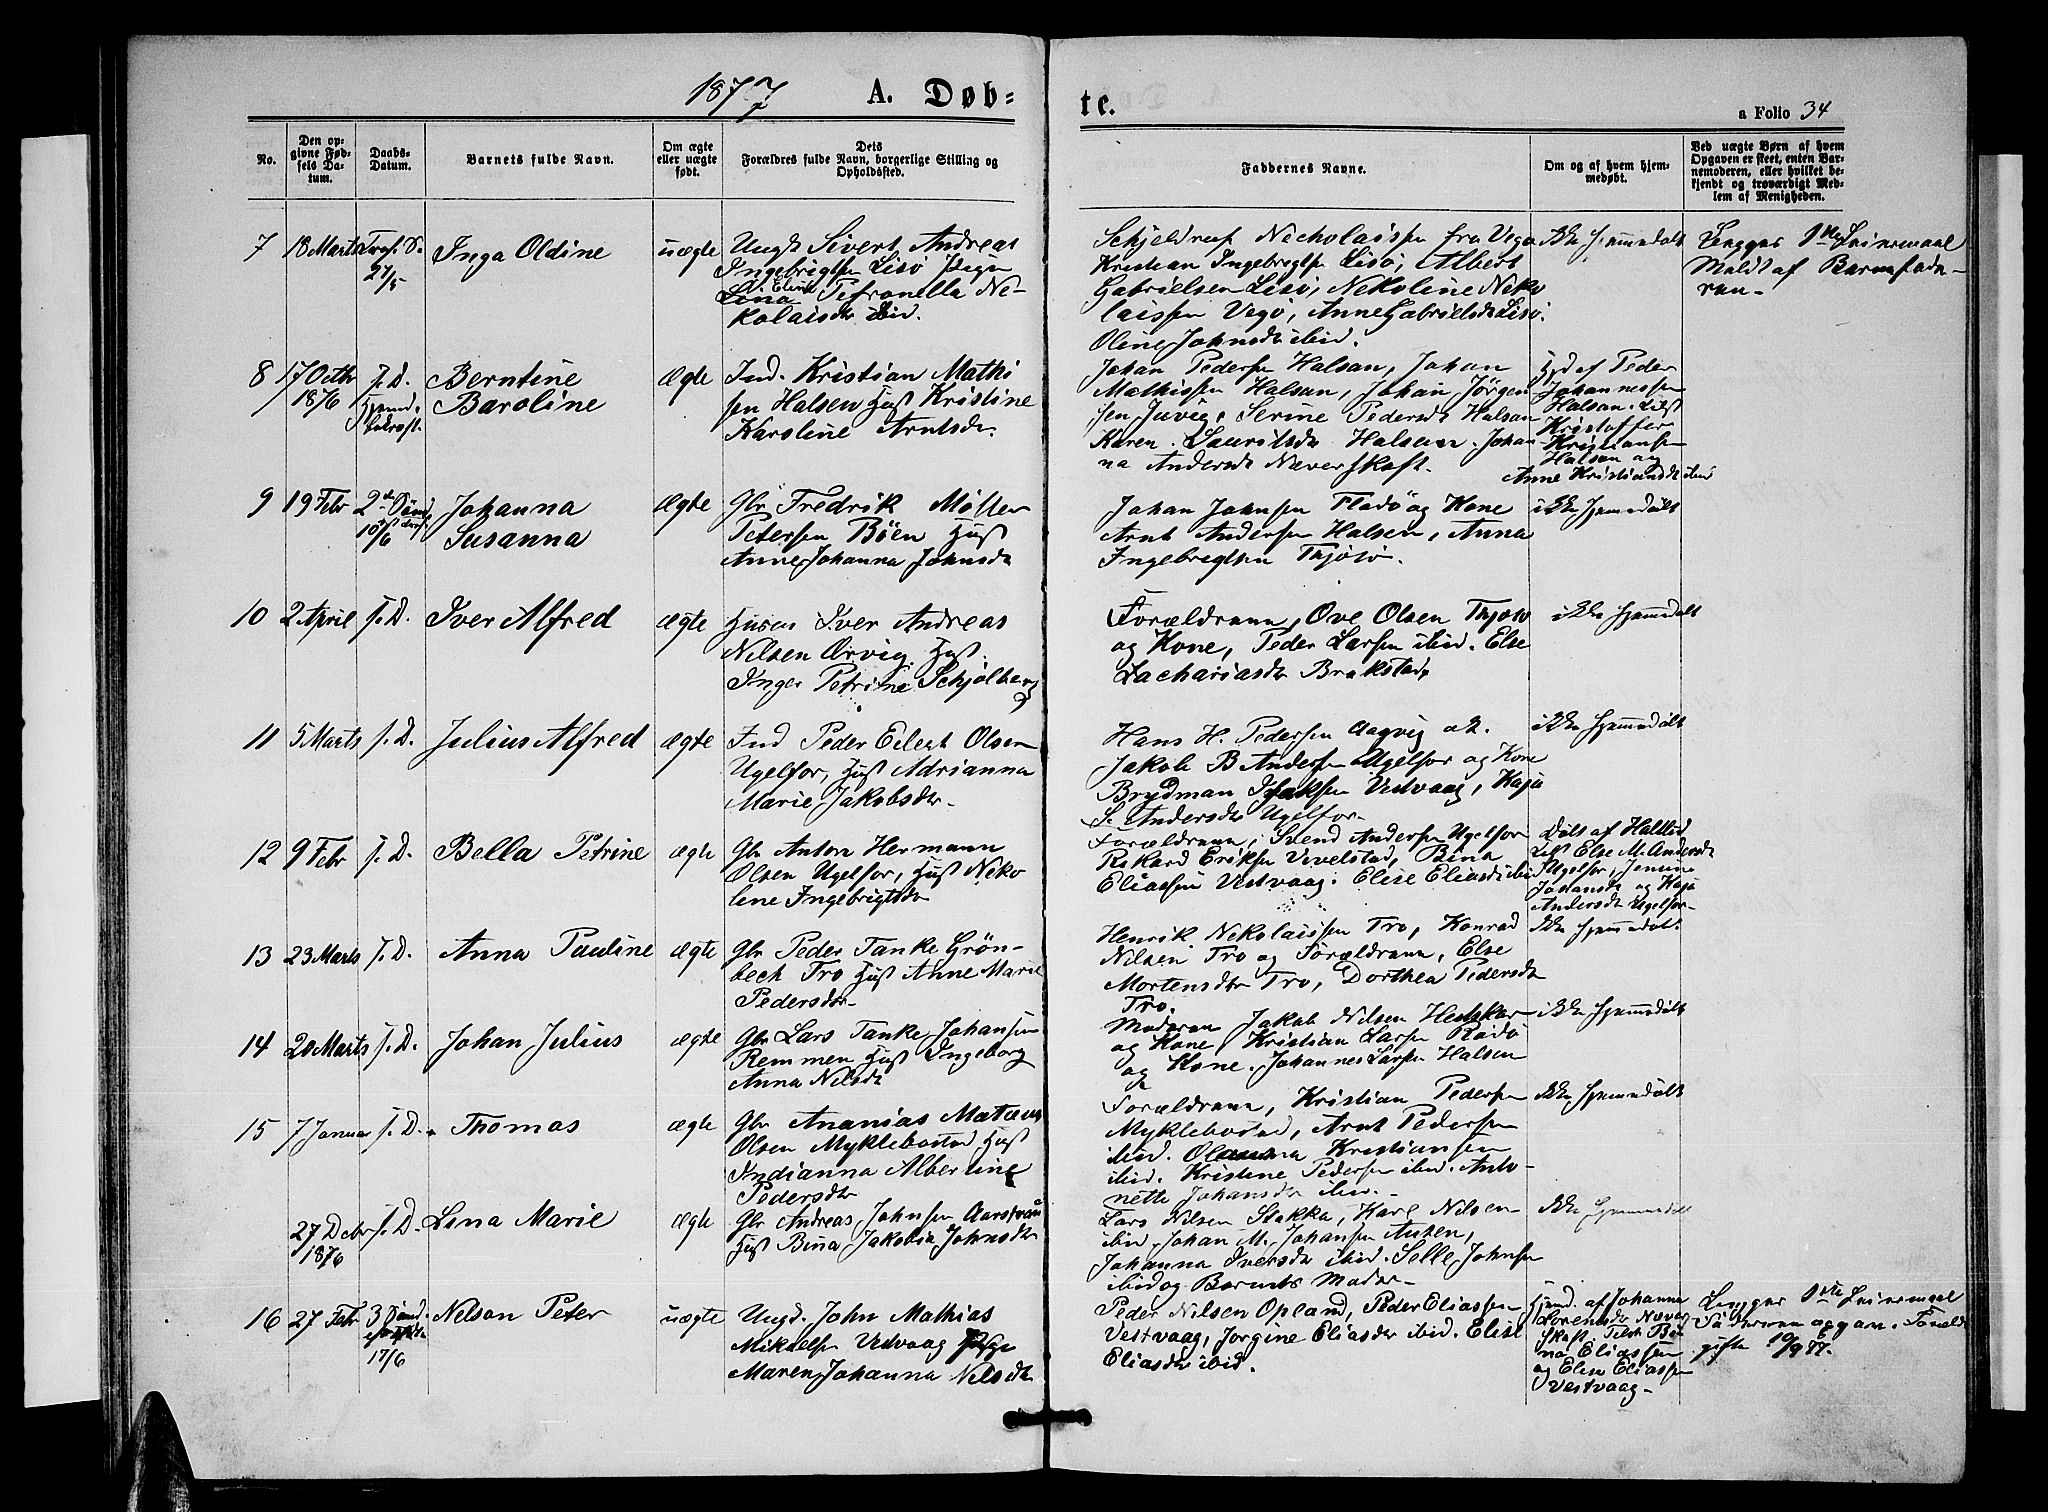 1877 A. Døb=
te.
a Folio 34
No.
Den op-
givne Fød-
sels Da-
tum.
Daabs-
Datum.
Barnets fulde Navn.
Om ægte
eller uægte
født.
Dets
Forældres fulde Navn, borgerlige Stilling og
Opholdssted.
Faddernes Navne.
Om og af hvem hjem-
medøbt.
Ved uægte Børn af hvem
Opgaven er skeet, enten Bar-
nemoderen, eller hvilket be-
kjendt og troværdigt Med-
lem af Menigheden.
7 18 Marts
21/5
Inga Oldine
uægte
Ungk Sivert Andreas
Ingebrigtsen Lisö Pigen
Lina Eline Petronella Ne-
kolaisdtr ibid.
Schjeldrup Necholaissen fra Vega
Kristian Ingebrigtsn Lisö, Albert
Gabrielsen Lisö, Nekoline Neko
laissen Vegö, Anne Gabrielsdt Lisö.
Oline Johnsdt ibid.
ikke hjemmedøbt
Lægger 1ste Leiermaal
Meldt af Barnefade-
ren-
8 17 Octbr
1876
J. D.
Hjemd.
bekræft.
Berntine
Baroline
Ægte
Ind. Kristian Mathi
sen Halsen Hust Kristine
Karoline Arntsdtr.
Johan Pedersen Halsan, Johan
Mathissen Halsan, Johan Jörgen
sen Juvig, Serine Pedersdt Halsan
Karen Lauritsdtr Halsan. Johan
na Andersdt Næverskaft.
Hjd af Peder
Johannessen
Halsan. Tilst
Kristoffer
Kristiansen
Halsan og
Anne Kristiansdt ibid
9 19 Febr
10/6
Johanna
Susanna
Ægte
Gbr Fredrik Möller
Petersen Böen Hust
Anne Johanna Johnsdt
Johan Johnsen Flodö og Kone
Arnt Andersen Halsen, Anna
Ingebrigtsen Thjötö.
ikke hjemmedøbt
10 2 April
J. D.
Iver Alfred
ægte
Husm Iver Andreas
Nilsen Ørvig Hust.
Inger Petrine Schjölberg
Forældrene, Ove Olsen Thjötö
og Kone, Peder Larsen ibid. Else
Zachariasdtr Brakstad,
ikke hjemmedøbt
11 5 Marts
J. D.
Julius Alfred
ægte
Ind Peder Edvert Olsen
Ugelfor, Hust Adrianna
Marie Jakobsdtr-
Hans H. Pedersen Aagvig
Jakob B Andersen Ugelfor og Kone
Brydman Isaksen Vestvaag, Kaja
S. Andersdtr Ugelfor-
ikke hjemmedøbt
12 9 Febr
J. D.
Bella Petrine
ægte
Gbr Anton Hermann
Olsen Ugelfor, Hust Neko
line Ingebrigtsdt
Forældrene, Svend Andersen Ugelfor
Rikard Eriksen Vevelstad, Bina
Eliassen Vestvaag. Elise Eliasdt ibid
Else M. Andersdt
Ugelfor, Jensine
Johansdt og Kaja
Andersdt Ugelfor-
13 23 Marts
J. D.
Anna Pauline
ægte
Gbr Peder Tanke Grön-
bech Tro Hust Anne Marie
Pedersdtr-
Henrik Nekolaissen Tro, Konrad
Nilsen Tro og Forældrene, Else
Mortensdtr Tro, Dorthea Pedersdt
Tro.
ikke hjemmedøbt.
14 20 Marts
J. D.
Johan Julius
ægte
Gbr Lars Tanke Johansen
Remmen Hust Ingeborg
Anna Nilsdt
Moderen Jakob Nilsen Hesskar
og Kone, Kristian Larsen Rödö
og Kone. Johannes Larsen Halsen
ikke hjemmedøbt
15 7 Januar
J. D.
Thomas
ægte
Gbr Ananias Matæus
Olsen Myklebostad Hust
Indianna Albertine
Pedersdtr
Forældrene, Kristian Pedersen
Myklebostad, Arnt Pedersen
ibid. Olaanna Kristiansen
ibid. Kristine Pedersen ibid. Anto-
nette Johansdtr ibid.-
ikke hjemmedøbt
27 Debr
1876
J. D.
Lina Marie
ægte
Gbr Andreas Johnsen
Hust Bina Jakobia Johnsdtr
Lars Nilsen Stokka, Karl Nilsen
ibid. Johan M. Johansen Austen,
Johanna Iversdtr ibid. Selle Johnsen
ibid og Barnets Moder-
ikke hjemmedøbt
16 27 Febr
17/6
Nelson Peter
uægte
Ungd. John Mathias
Mikkelsen Vestvaag Pige
Maren Johanna Nilsdt
Peder Nilsen Opland, Peder Eliassen
Vestvaag, Jorgine Eliasdtr ibid. Elise
Eliasdtr ibid.
Hjemd. af Johanna
Lorensdtr Næver
skaft. Tilst Bi
na Eliassen
og Elise Eliassen
Vestvaag-
Lægger 1ste Leiermaal
gifte 10/9 77.